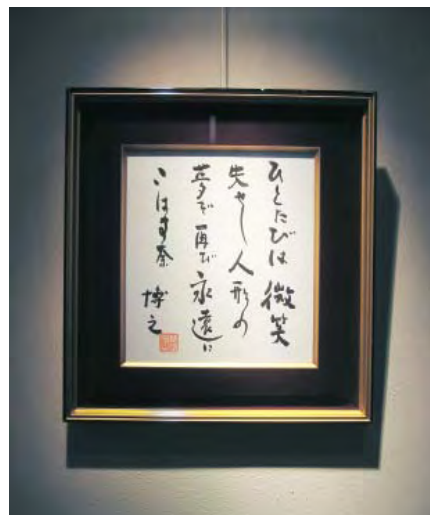 ひとたびは微笑
失せし人形の
夢で再び永遠に
こはす奈
博之